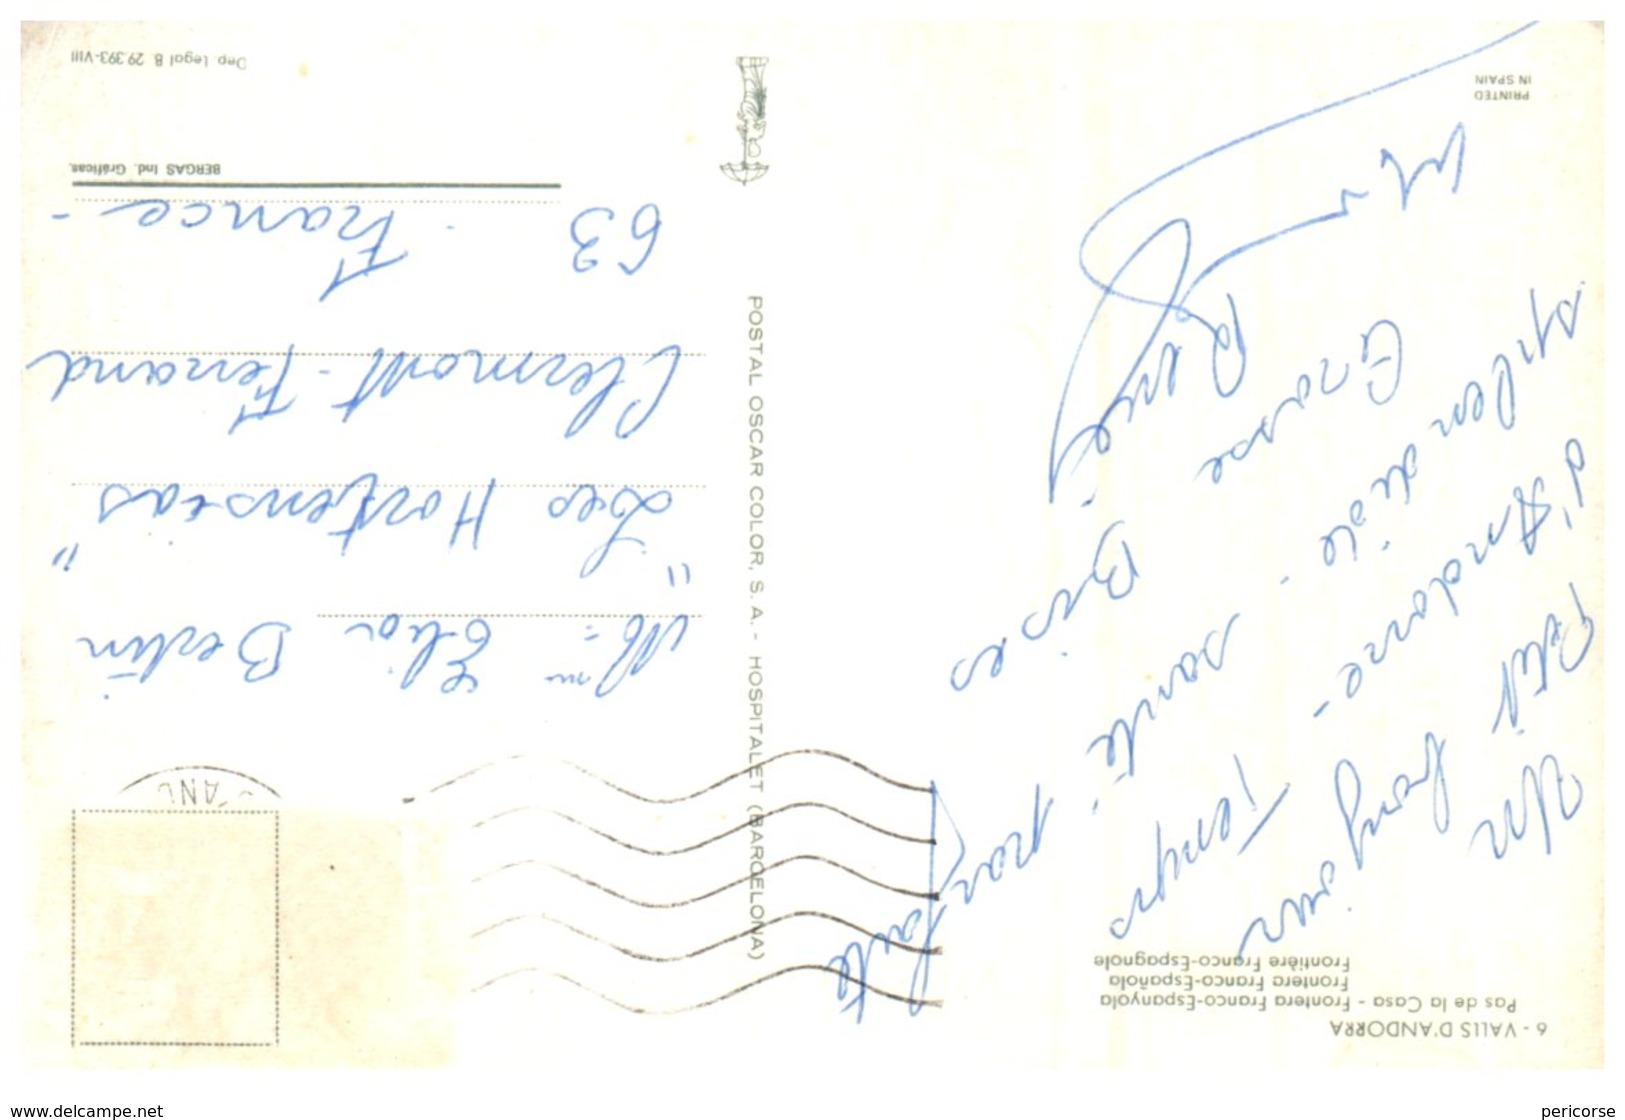 6 - VALLS D'ANDORRA
Pas de la Casa - Frontera Franco-Espanyola
Frontera Franco-Española
Frontière Franco-Espagnole
Un
Petit bonjour
d'Andorre - Temps
splendide - santé parfaite
Grosse Bises
René
PRINTED
IN SPAIN
POSTAL OSCAR COLOR, S. A. - HOSPITALET (BARCELONA)
Berlin
"Les Hortensias"
Clermont-Ferrand
63 - France -
BERGAS Ind. Gráficas.
Dep. Legal B. 29.393-VIII
www.delcampe.net
pericorse